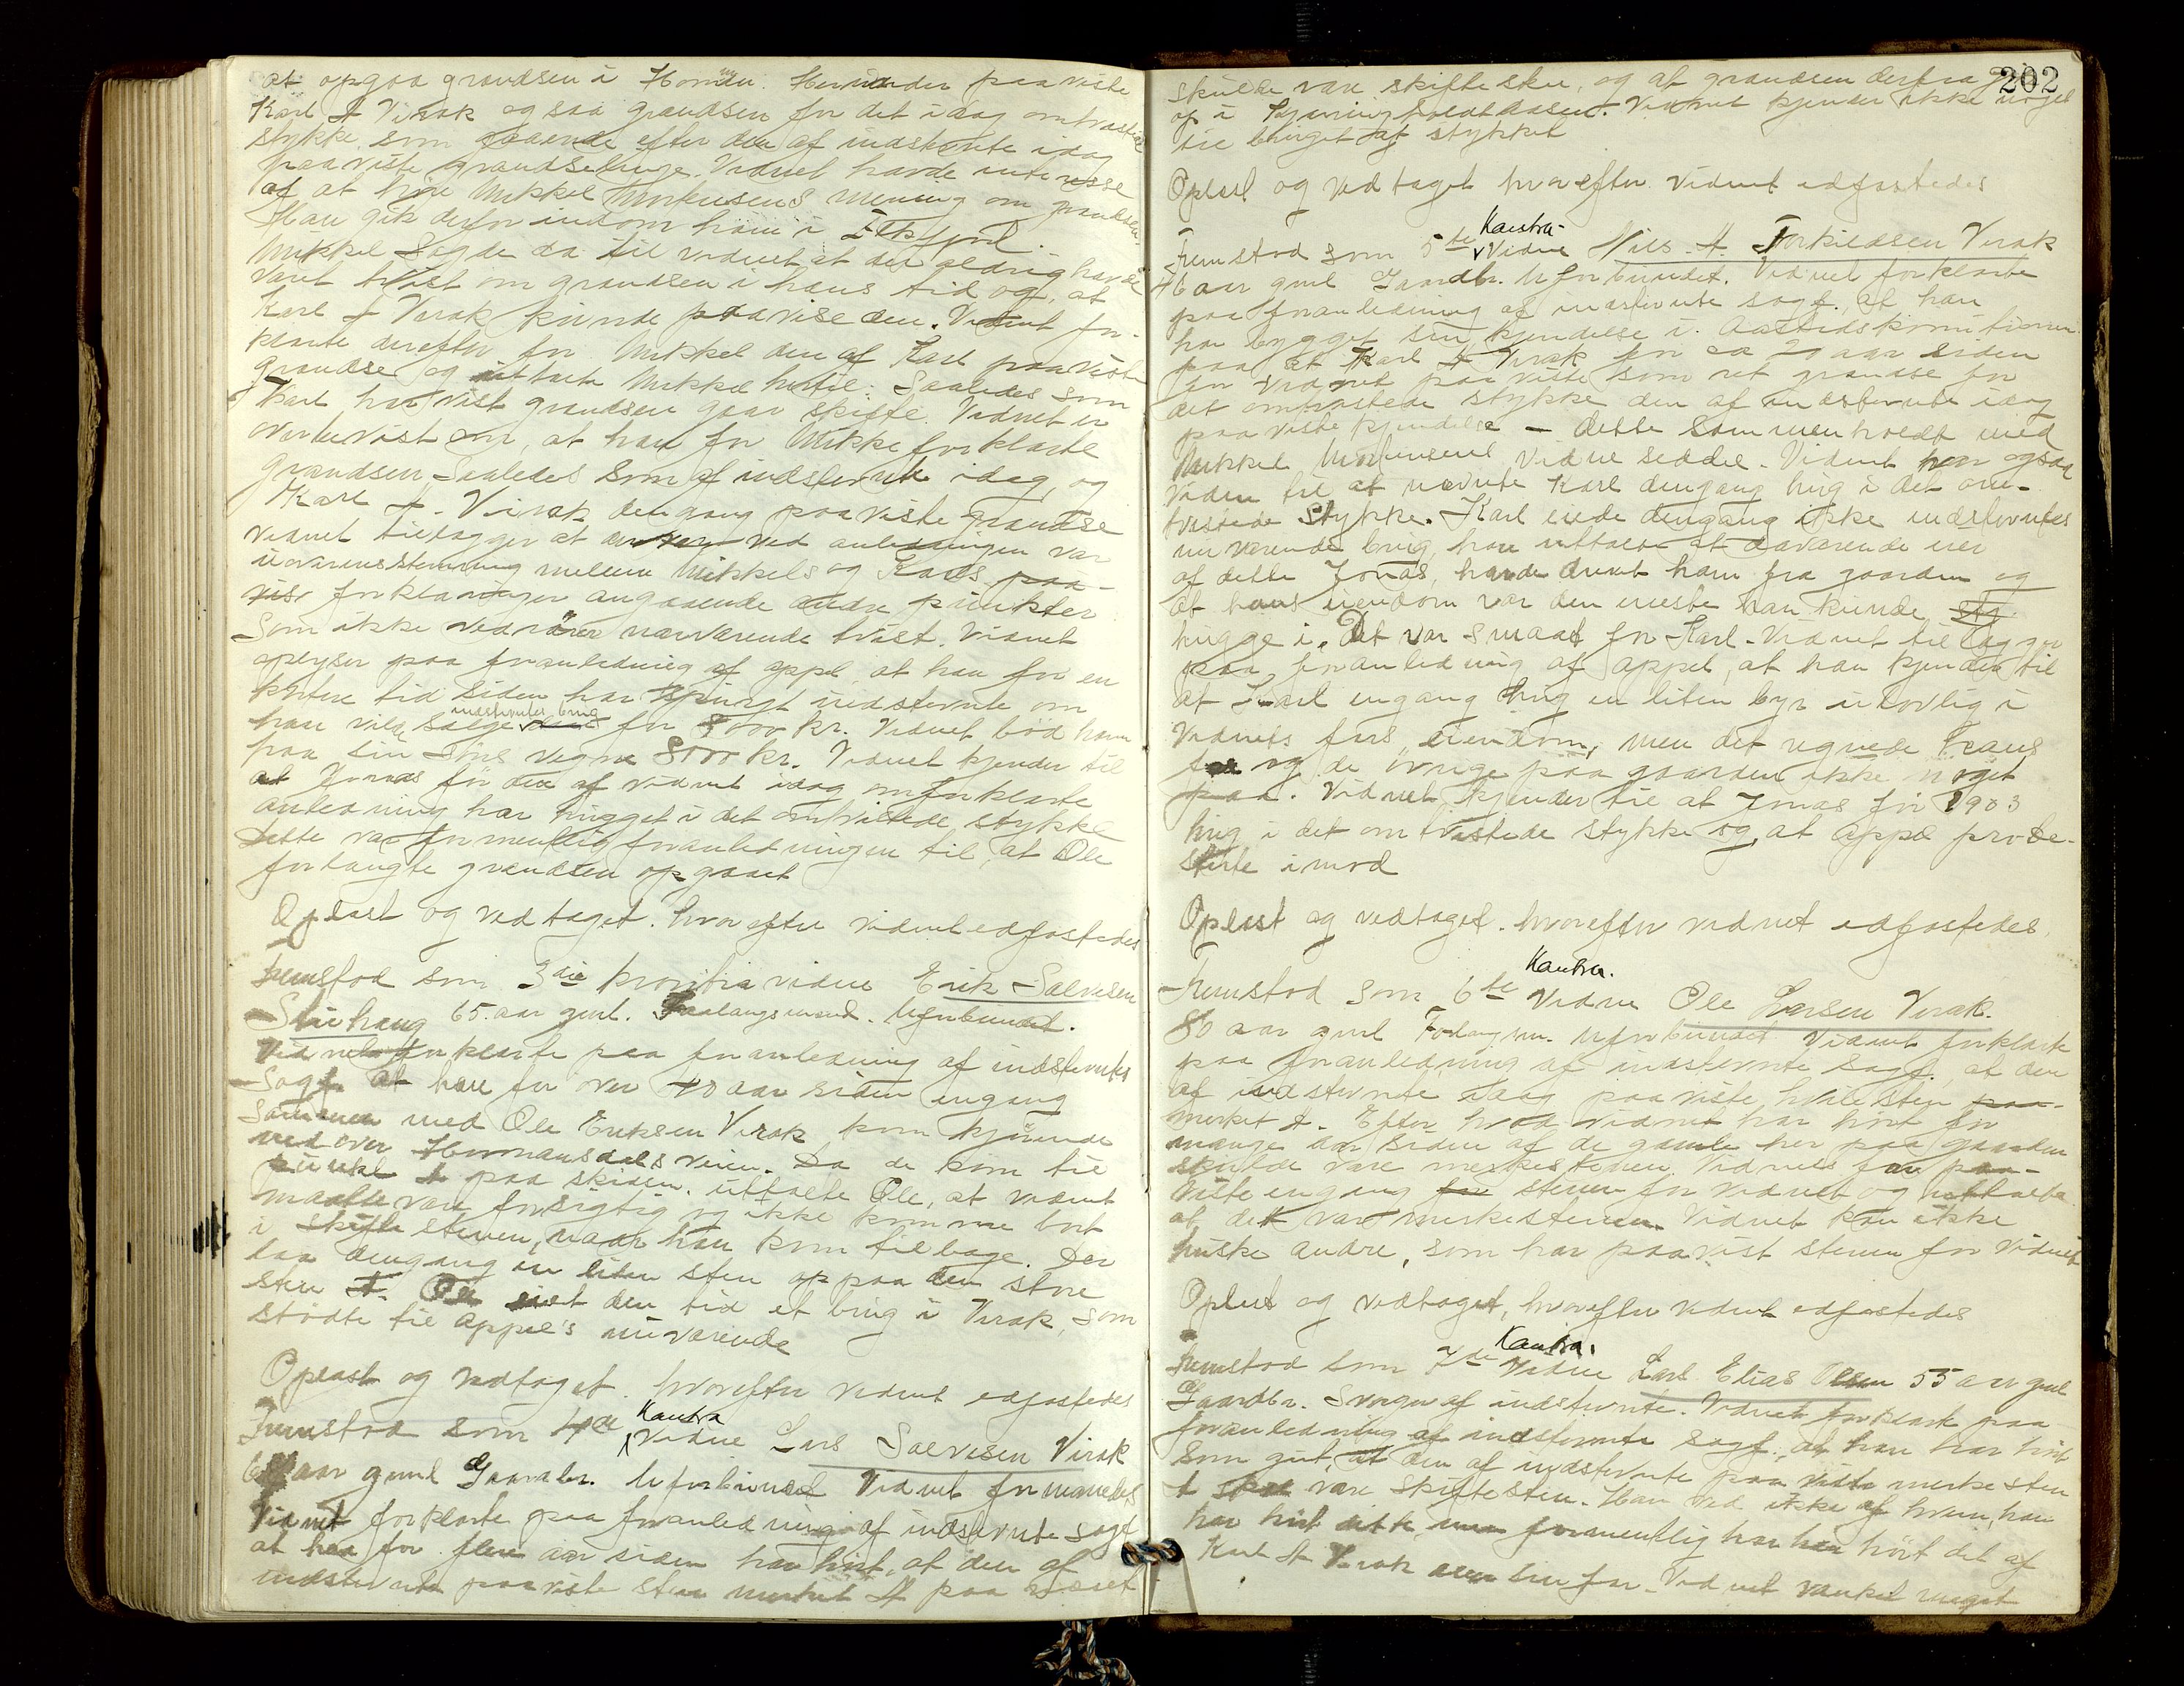 at opgaa grændsen i Homen. Herunder paaviste
Karl A Virak ogsaa grændsen for det idag omtvistede
stykke som gaaende efter den af indstevnte idag
paaviste grændselinje. Vidnet havde interesse
af at høre Mikkel Mortensens mening om grændsen.
Han gik derfor indom ham i
Mikkel sagde da til vidnet at der aldrig havde
været tvist om grændsen i hans tid og at
Karl A Virak kunde paavise den. Vidnet for-
klarte derefter for Mikkel den af Karl paaviste
grændse og uttalte Mikkel hertil: Saaledes som
Karl har vist grændsen gaar skifte. Vidnet er
overbevist om, at han for Mikkel forklarte
grændsen saaledes som af indstevnte idag, og
Karl A. Virak dengang paaviste grændse
vidnet tilægger at der ved anledningen var
uoverensstemning mellem Mikkels og Karls paa-
vis forklaringer angaaende andre punkter
som ikke vedrører nærværende tvist. Vidnet
oplyser paa foranledning af appl. at han for en
kortere tid siden har spurgt indstevnte om
han vilde sælge indstevntes brug for 8000 kr. Vidnet bød ham
paa sin søns vegne 8000 kr. Vidnet kjender til
at Jonas før den af vidnet idag omforklarte
anledning har hugget i det omtvistede stykke
Dette var formentlig foranledningen til, at Ole
forlangte grændsen opgaaet
Oplæst og vedtaget. hvorefter vidnet edfæstedes
Fremstod som 3die kontra vidne Erik Salvesen
65. aar gml. Foderlaugsmand. Uforbundet.
Vidnet forklarte paa foranledning af indstevntes
Sagf. at han for over 40 aar siden engang
sammen med Ole Eriksen Virak kom kjørende
ned over Hermansdalsveien. Da de kom til
punkt A paa skissen, uttalte Ole, at vidnet
maatte være forsigtig og ikke komme bort
i skiftestenen, naar han kom tilbage. Der
laa dengang en liten sten op paa den store
sten A. Ole eiet den tid et brug i Virak, som
stødte til appel's nuværende
Oplæst og vedtaget. hvorefter vidnet edfæstedes
Fremstod som 4de Kontra Vidne Lars Salvesen Virak
aar gml Gaardbr. Uforbundet Vidnet formanedes
Vidnet forklarte paa foranledning af indstevnte Sagf
at han for flere aar siden har hørt, at den af
indstevnte paaviste sten merket A paa
202
skulde være skiftesten, og at grændsen derfra gik
op i. Vidnet kjender ikke noget
til bruget af stykket
Oplæst og vedtaget hvorefter vidnet edfæstedes
Fremstod som 5te Kontra-Vidne Nils A. Torkildsen Virak
46 aar gml Gaardbr. Uforbundet. Vidnet forklarte
paa foranledning af indstevnte sagf. at han
har bygget sin kjendelse i Aastedskomitionen
paa at Karl A Virak for ca 20 aar siden
for vidnet paaviste som ret grændse for
det omtvistede stykke den af indstevnte idag
paaviste kjendelse - dette sammenholdt med
Mikkel Mortensens vidneseddel. Vidnet har ogsaa
viden til at nævnte Karl dengang hug i det om-
tvistede stykke. Karl eiede dengang ikke indstevntes
nuværende brug, han uttalte at daværende eier
af dette Jonas, havde drevet ham fra gaarden og
at hans eiendom var den eneste han kunde
hugge i. Det var smaat for Karl. Vidnet tilægger
paa foranledning af appel, at han kjender til
at Karl engang hug en liten byr ulovlig i
vidnets fars eiendom, men det regnede hans
far og de øvrige paa gaarden ikke noget
paa. Vidnet kjender til at Jonas før 1903
hug i det omtvistede stykke og, at appel prote-
sterte imod
Oplæst og vedtaget. hvorefter vidnet edfæstedes.
Fremstod som 6te Kontra. Vidne Ole Larsen Virak.
80 aar gml Uforbundet Vidnet forklarte
paa foranledning af indstevnte sagf., at den
af indstevnte idag paaviste hvilesten paa-
merket A. Efter hvad vidnet har hørt for
mange aar siden af de gamle her paa gaarden
skulde være merkestenen. Vidnets far paa-
viste engang for stenen for vidnet og uttalte
at det var merkestenen. Vidnet kan ikke
huske andre, som har paavist stenen for vidnet
Oplæst og vedtaget, hvorefter vidnet edfæstedes
Fremstod som 7de Kontra. Vidne Karl Elias Olsen 55 aar gml
Gaardbr. Svoger af indstevnte. Vidnet forklarte paa
foranledning af indstevnte sagf., at han har hørt
som gut, at den af indstevnte paaviste merkesten
A skal være skiftesten. Han ved ikke af hvem, han
har hørt dette, men formentlig har han hørt det af
Karl A Virak eller sin far. Vidnet vanket meget